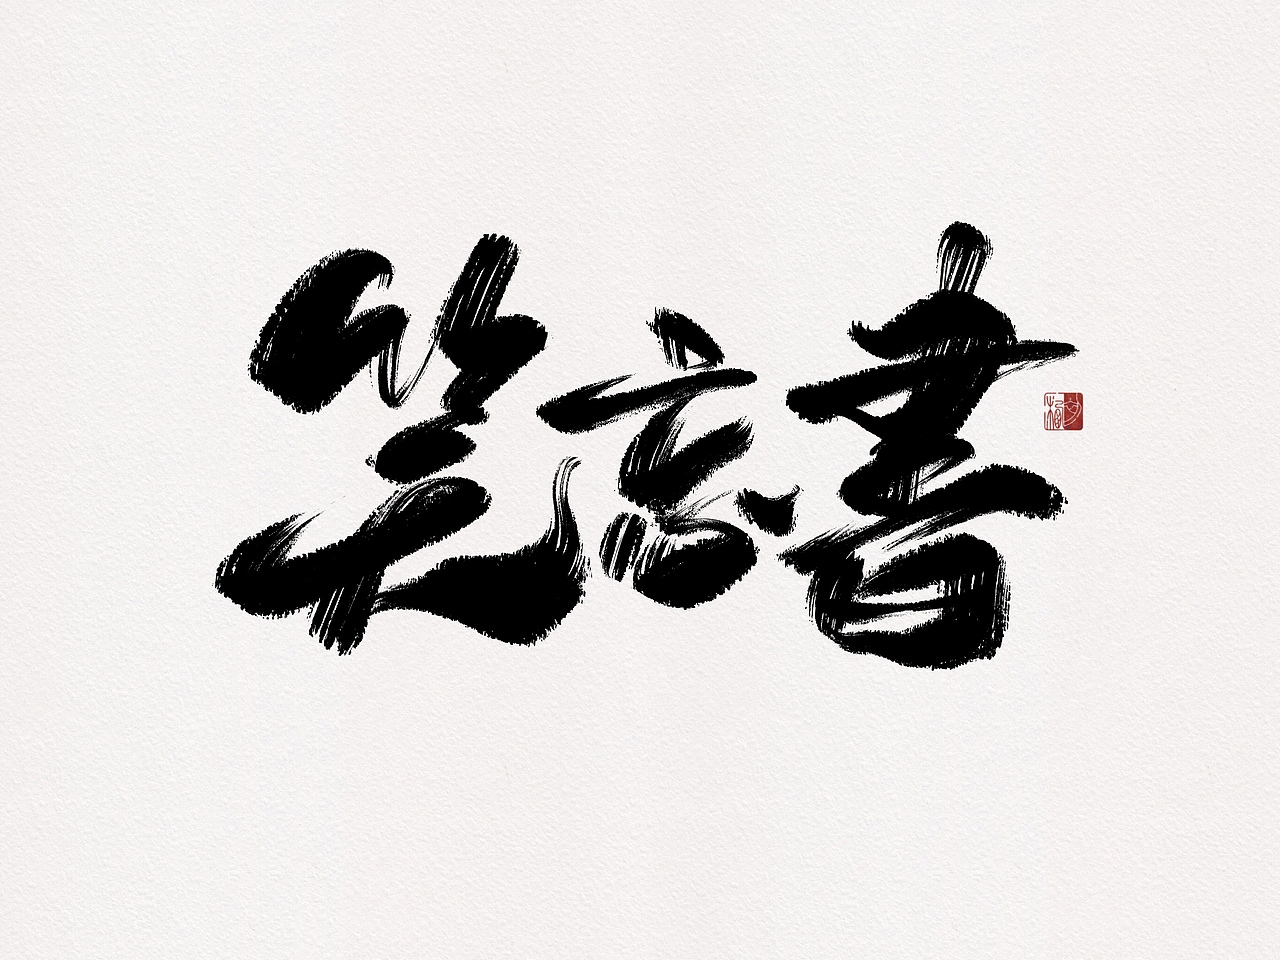 笑忘書